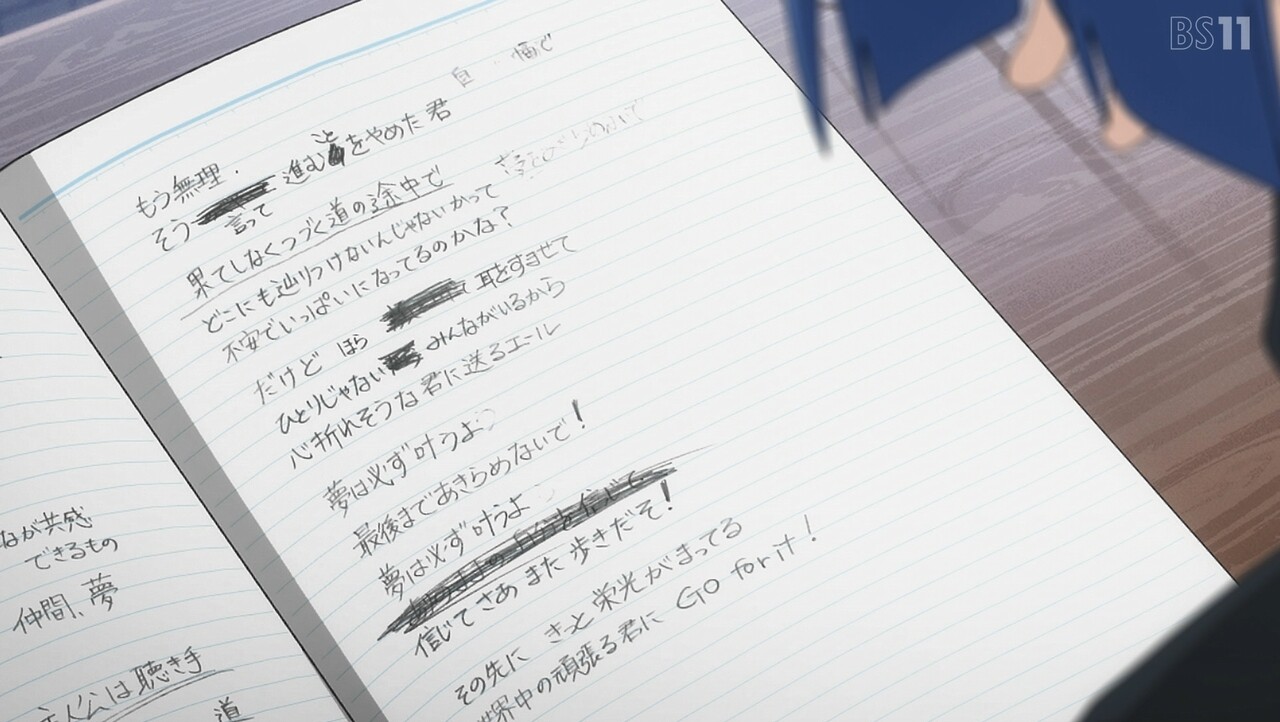 BS11
もう無理.
そう言って進むことをやめた君
果てしなくつづく道の途中で
どこにも辿りつけないんじゃないかって
不安でいっぱいになってるのかな?
だけど ほら 耳をすませて
ひとりじゃない みんながいるから
心折れそうな君に送るエール
夢は必ず叶うよ
最後まであきらめないで!
夢は必ず叶うよ
信じてさあ また 歩きだそ!
その先に きっと 栄光がまってる
世界中の頑張る君に GO for it!
なが共感
できるもの
仲間、夢
人公は聴き手
道